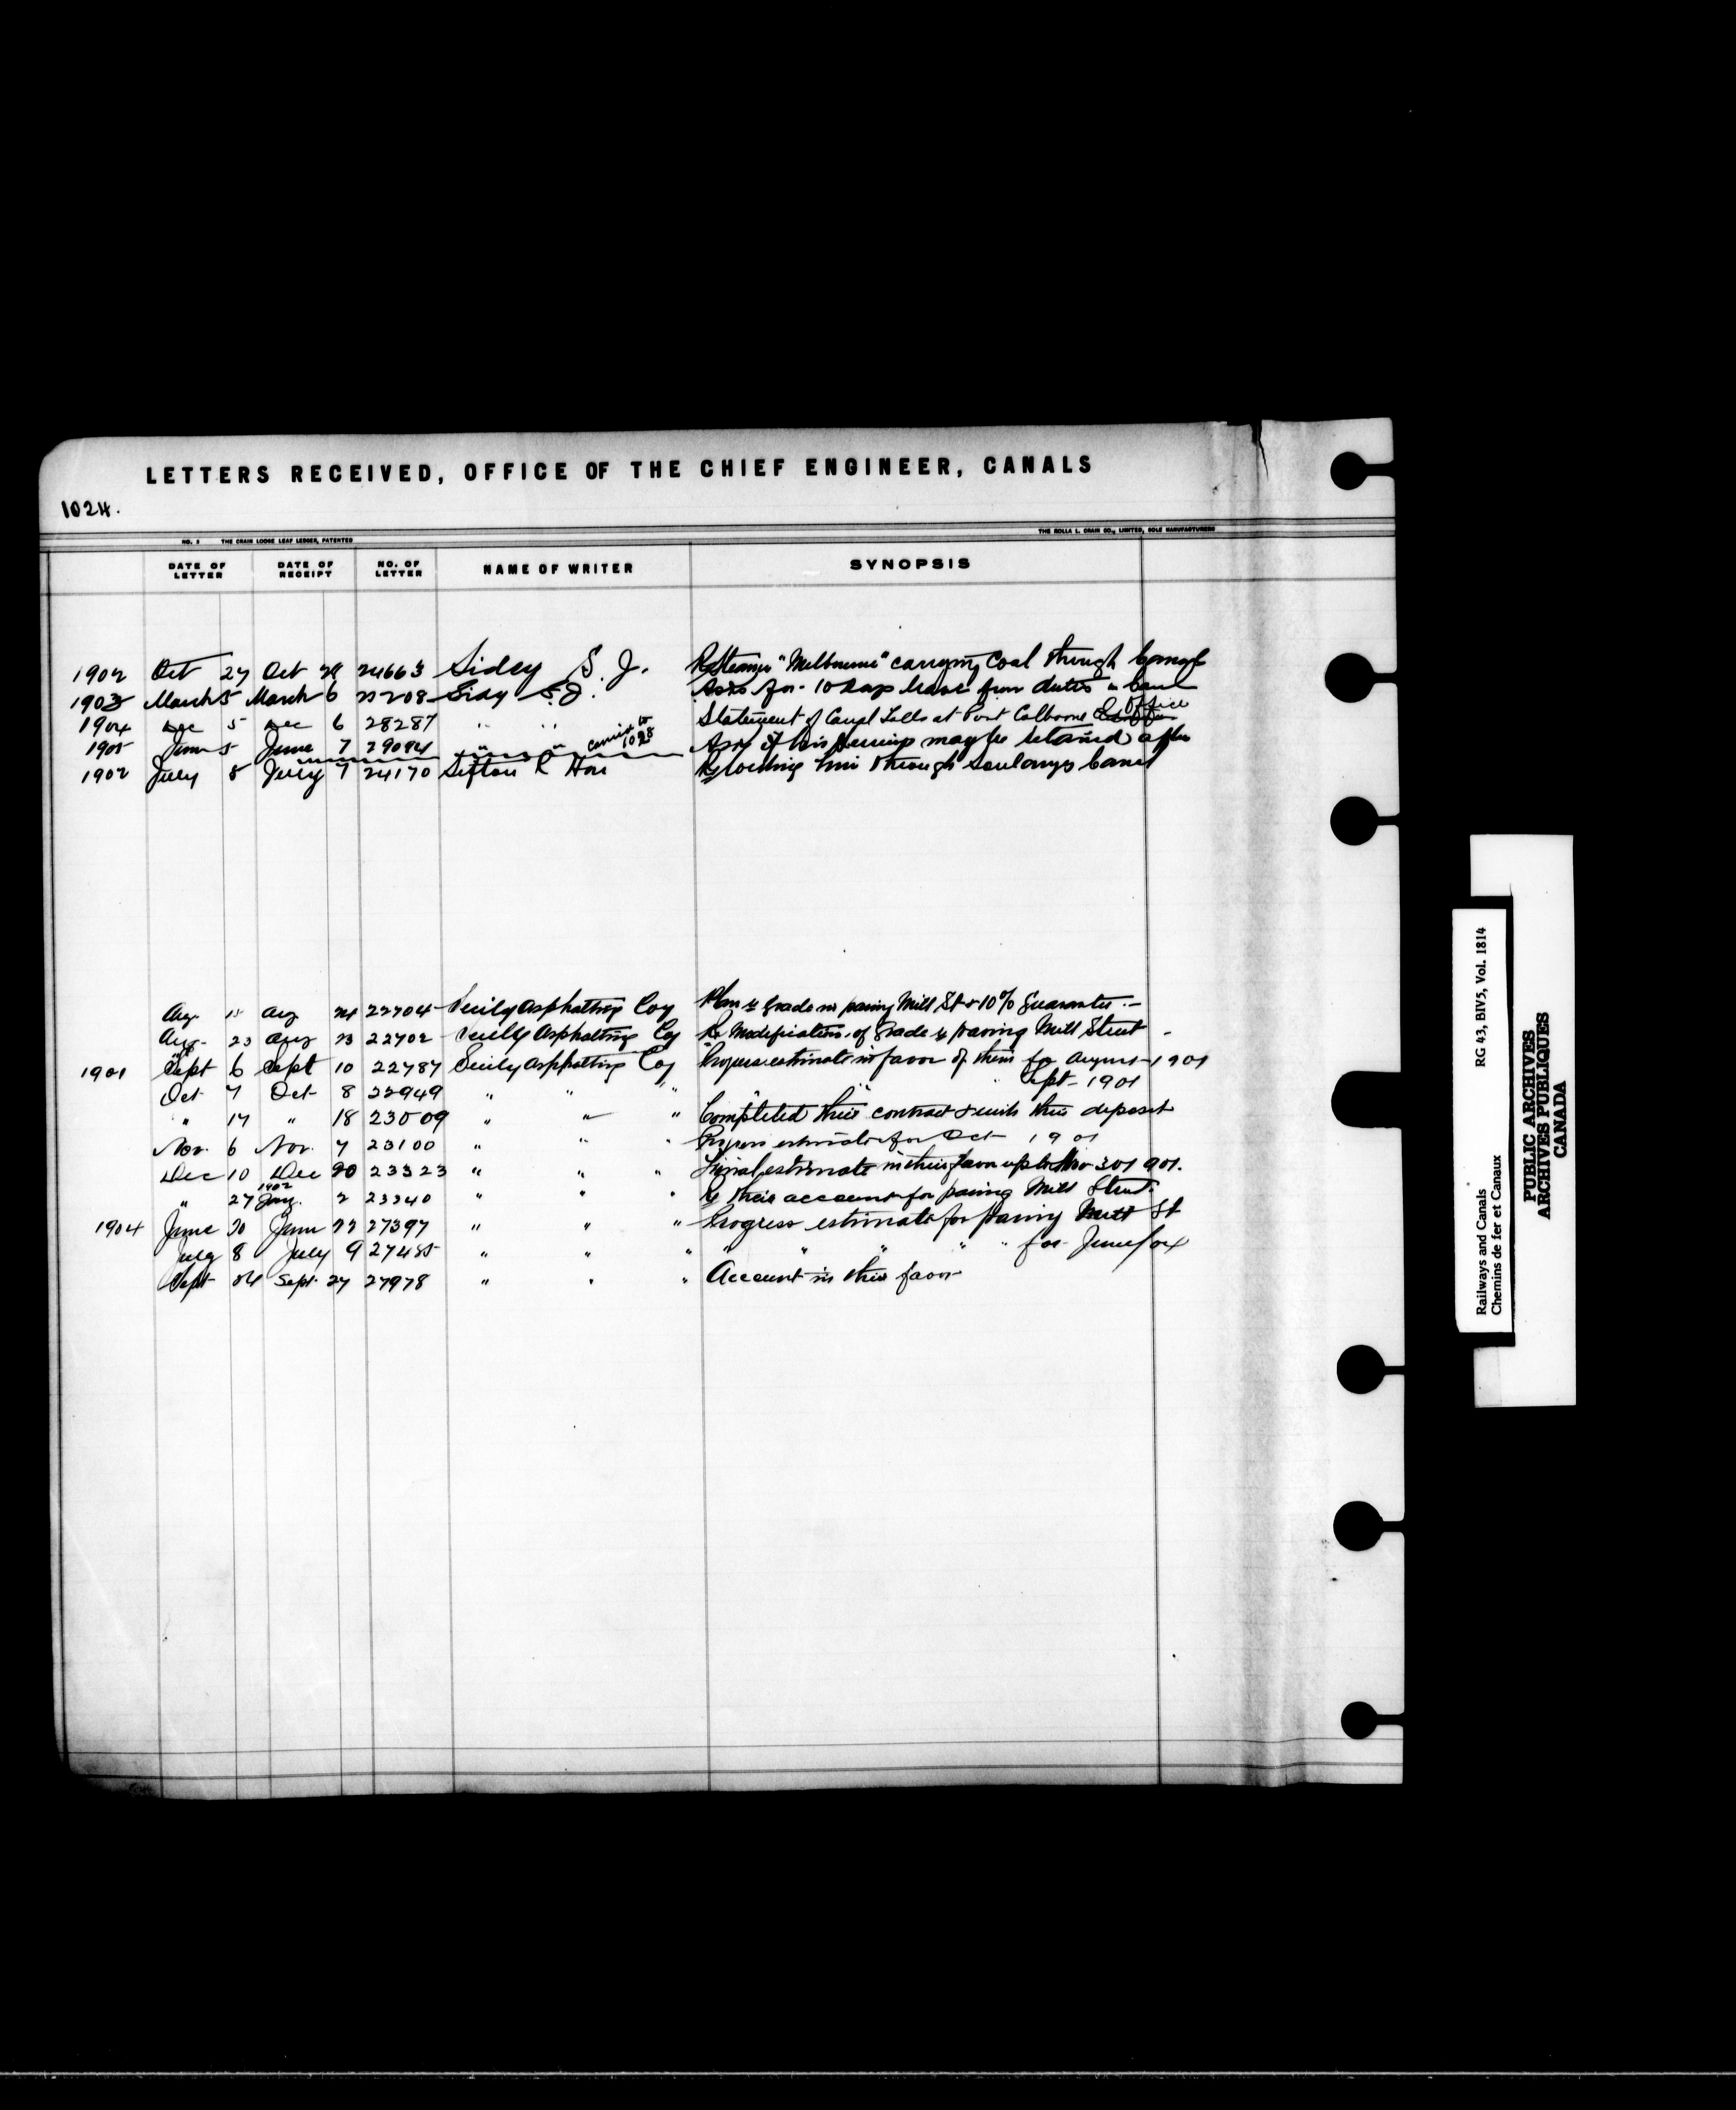 LETTERS RECEIVED, OFFICE OF THE CHIEF ENGINEER, CANALS
1024.
NO. 2 THE CRAIN LOOSE LEAF LEDGER, PATENTED THE ROLLA L. CRAIN CO., LIMITED, SOLE MANUFACTURERS
DATE OF LETTER DATE OF RECEIPT NO. OF LETTER NAME OF WRITER SYNOPSIS
1902 Oct 27 Oct 24663 Sidey S. J. Re Steamer "Melbourne" carrying Coal through Canal
1903 March 5 March 6 Sidy S.J. Asks for 10 days leave from duties
1904 Dec 5 Dec 6 28287 " " Statement of Canal Tolls at Port Colborne Office
1905 June 5 June 7 29084 " " carried to 1028 Asks if his services may be retained after
1902 July 8 July 9 24170 Sifton Hon Re locking him through Soulanges Canal
Aug Aug 22704 Sicily Asphalting Coy Plan & grade in paving Mill St & 10% Guarantee
Aug 23 Aug 22702 Sicily Asphalting Coy Re Modification of Grade paving Mill Street
1901 Sept 6 Sept 10 22787 Sicily Asphalting Coy Progress estimate in favor of them for August 1901
Oct 7 Oct 8 22949 " " " " " Sept 1901
" 17 " 18 23009 " " " Completed their contract & wish their deposit
Nov. 6 Nov. 7 23100 " " " Progress estimate for Oct 1901
Dec 10 Dec 20 23323 " " " Final estimate in their favor up to Nov 30 1901.
" 27 1902 Jany. 2 23340 " " " Re their account for paving Mill Street
1904 June 20 June 22 27397 " " " Progress estimate for paving Mill St
July 8 July 9 27485 " " " " " " " " for June/04
Sept 24 Sept. 27 27978 " " " Account in their favor
Railways and Canals RG 43, BIV5, Vol. 1814
Chemins de fer et Canaux
PUBLIC ARCHIVES
ARCHIVES PUBLIQUES
CANADA